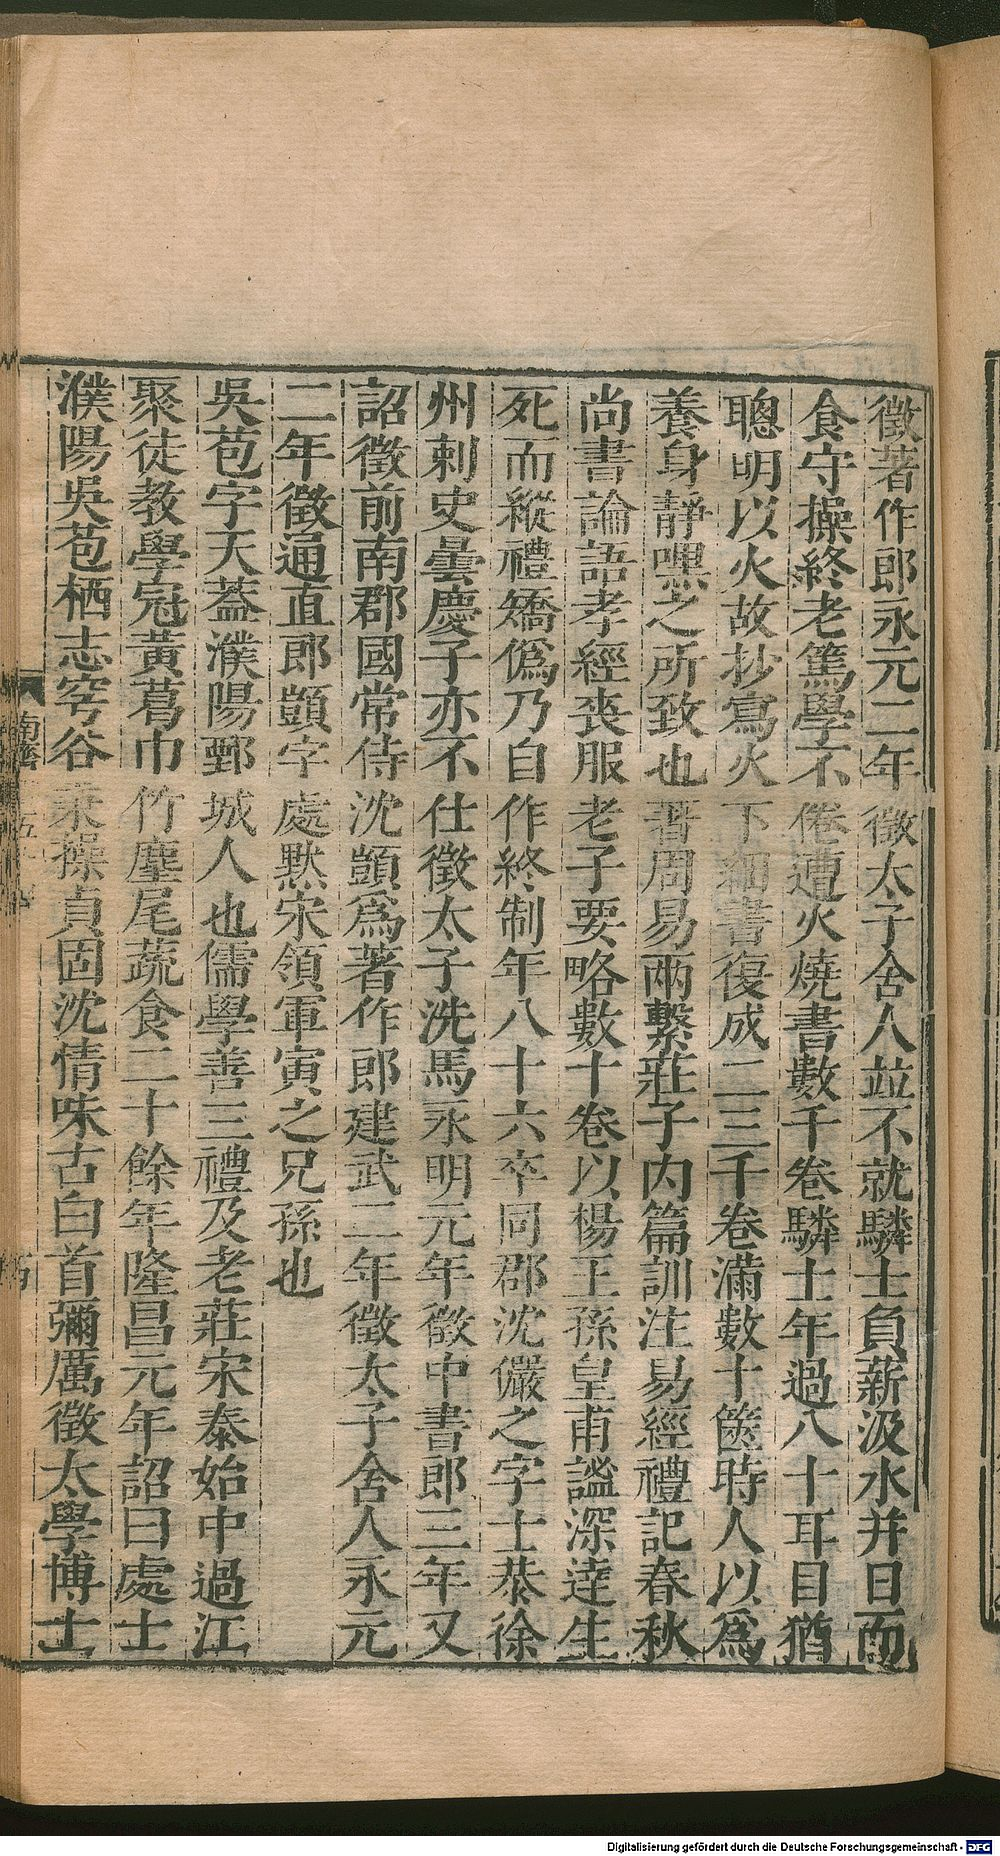 徵著作郎永元二年徵太子舍人並不就驎士負薪汲水并日而
食守操終老篤學不倦遭火燒書數千卷驎士年過八十耳目猶
聰明以火故抄寫火下細書復成二三千卷滿數十篋時人以爲
養身靜嘿之所致也著周易兩繫莊子內篇訓注易經禮記春秋
尚書論語孝經喪服老子要略數十卷以楊王孫皇甫謐深達生
死而縱禮矯僞乃自作終制年八十六卒同郡沈儼之字士恭徐
州刺史曇慶子亦不仕徵太子洗馬永明元年徵中書郎三年又
詔徵前南郡國常侍沈顗爲著作郎建武二年徵太子舍人永元
二年徵通直郎顗字處黙宋領軍寅之兄孫也
吳苞字天蓋濮陽鄄城人也儒學善三禮及老莊宋泰始中過江
聚徒教學冠黃葛巾竹麈尾蔬食二十餘年隆昌元年詔曰處士
濮陽吳苞栖志穹谷秉操貞固沈情味古白首彌厲徵太學博士
南齊
Digitalisierung gefördert durch die Deutsche Forschungsgemeinschaft - DFG